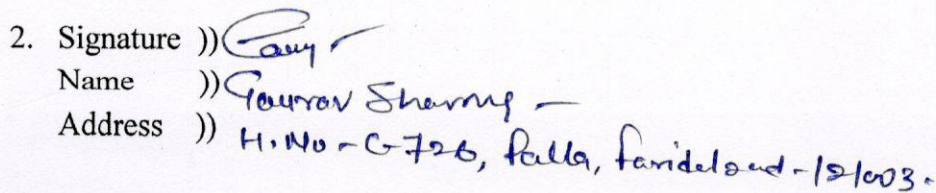 2. Signature ))
Name )) Gaurav Sharma -
Address )) H.No - G-726, Palla, Faridabad - 121003.